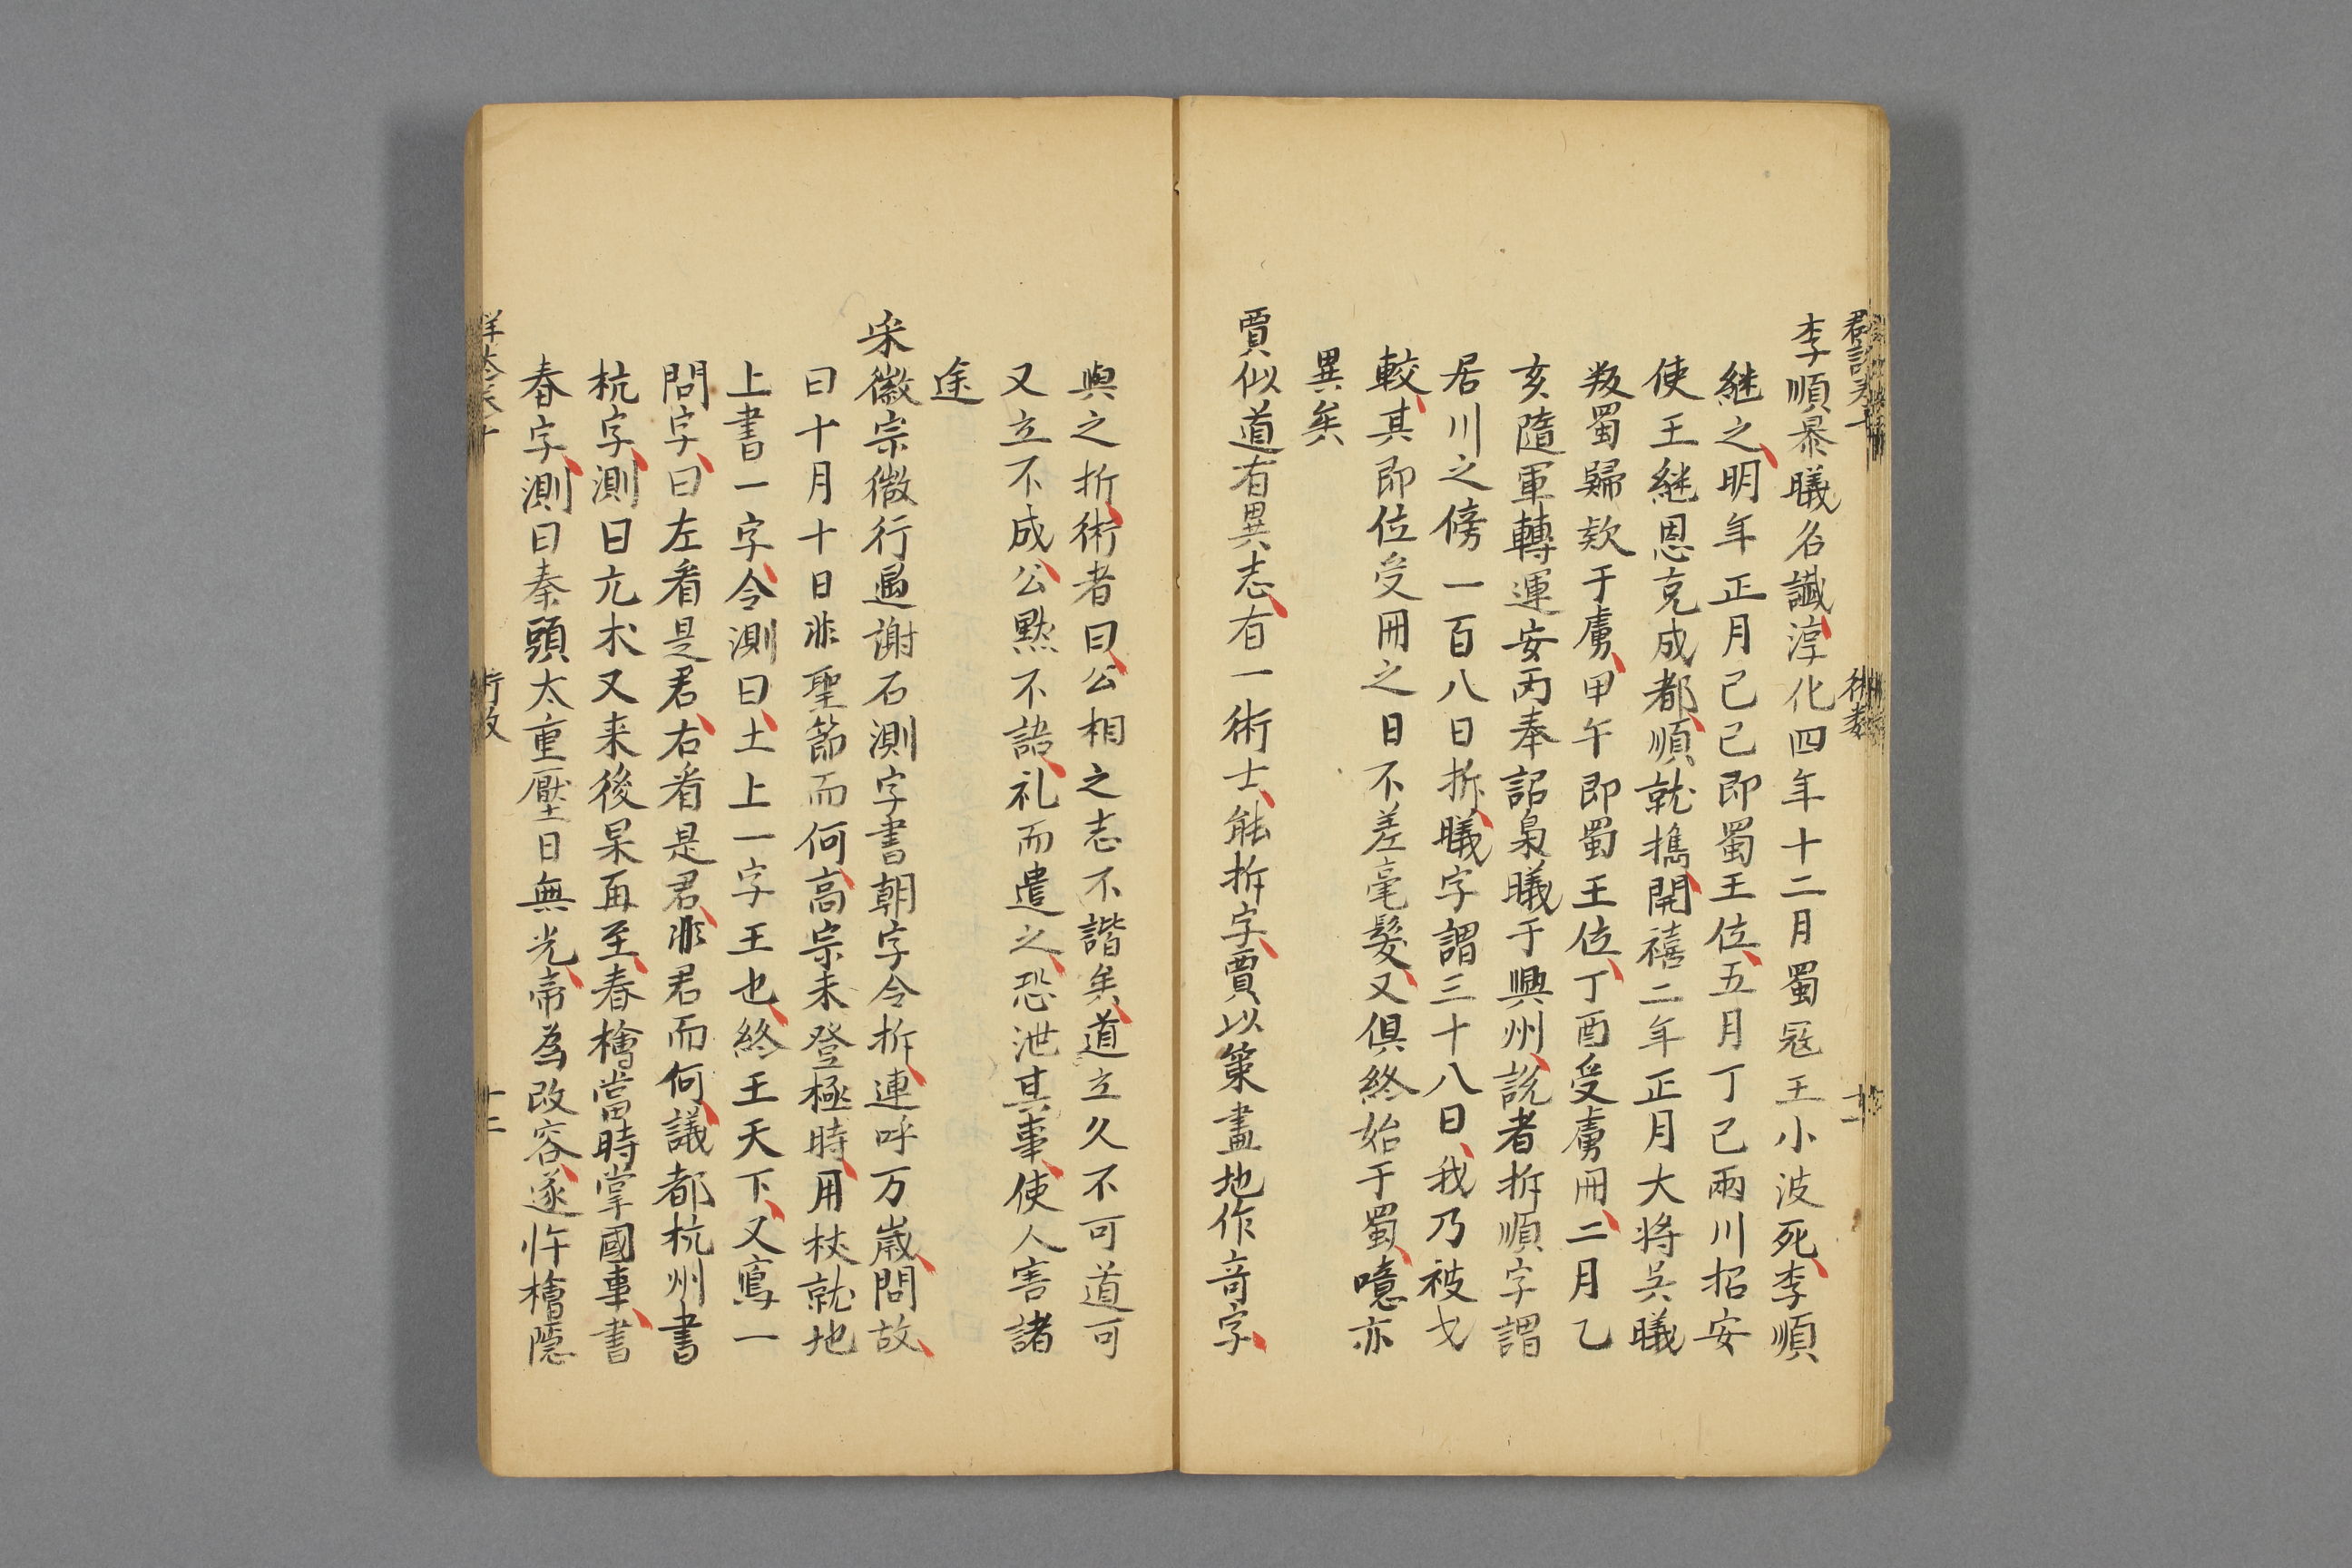 李順暴曦名讖淳化四年十二月蜀冦王小波死李順
継之明年正月己巳即蜀王位五月丁巳兩川招安
使王継恩克成都順就擒開禧二年正月大将吴曦
叛蜀歸欵于虜甲午即蜀王位丁酉受虜冊二月乙
亥隨軍轉運安丙奉詔梟曦于興州説者拆順字謂
居川之傍一百八日拆曦字謂三十八日我乃被戈
較其即位受冊之日不差毫髮又俱終始于蜀噫亦
異矣
賈似道有異志有一術士能拆字賈以策畫地作竒字
與之折術者曰公相之志不諧矣道立久不可道可
又立不成公黙不語礼而遣之恐泄其事使人害諸
途
宋徽宗微行遇謝石測字書朝字令拆連呼万歲問故
曰十月十日非聖節而何高宗未登極時用杖就地
上書一字令測曰土上一字王也終王天下又寫一
問字曰左看是君右看是君非君而何議都杭州書
杭字測曰亢朮又来後杲再至春檜當時掌國事書
春字測曰秦頭太重壓日無光帝為改容遂忤檜隱